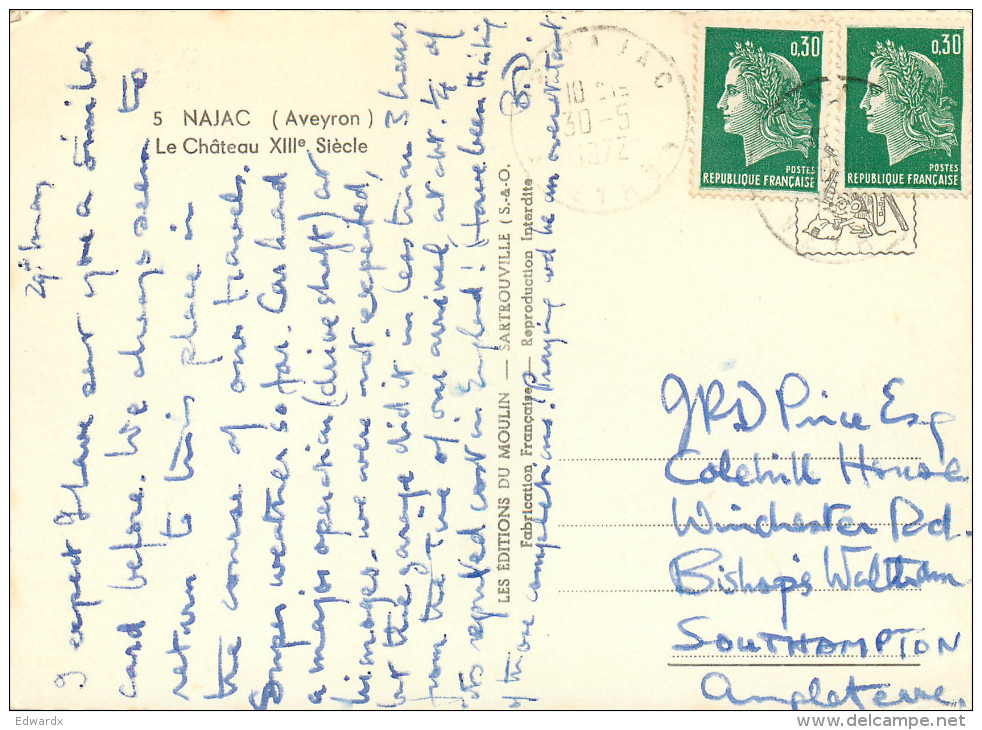 5 NAJAC (Aveyron)
Le Château XIIIe Siècle
29th May
I expect I have sent you a similar
card before. We always seem to
return to this place in
the course of our travels.
Super weather so far. Car had
a major operation (drive shaft) at
Limoges. We were not expected,
but the garage did it in less than 3 hours
from the time of our arrival at abt. 1/4 of
its reputed cost in England! Have been thinking
of more completions! Praying
B.D.
LES ÉDITIONS DU MOULIN — SARTROUVILLE (S.-&-O.
Fabrication Française — Reproduction Interdite
NAJAC
10 H
30-5
1972
0,30
POSTES
REPUBLIQUE FRANÇAISE
0,30
POSTES
REPUBLIQUE FRANÇAISE
JRD Price Esq
Colehill House
Winchester Rd.
Bishop's Waltham
SOUTHAMPTON
Angleterre.
Edwardx
www.delcampe.net